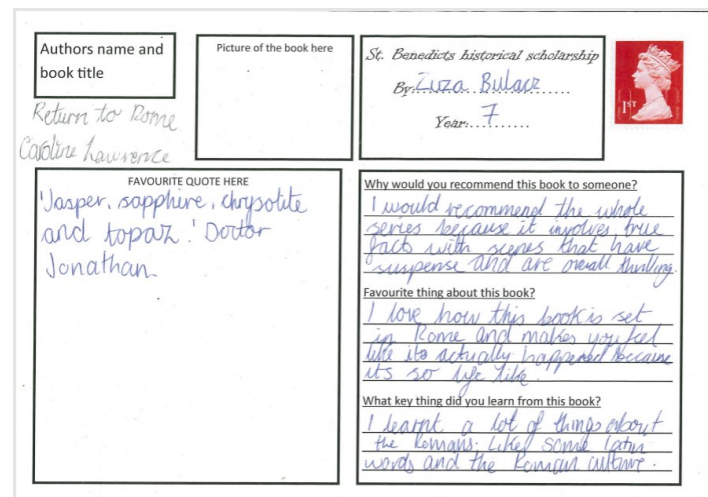 Authors name and
book title
Return to Rome
Caroline Lawrence
Picture of the book here
St. Benedicts historical scholarship
By: Zuza Bulacz
Year: 7
1ST
FAVOURITE QUOTE HERE
'Jasper, sapphire, chrysolite
and topaz.' Doctor
Jonathan.
Why would you recommend this book to someone?
I would recommend the whole
series because it involves true
facts with scenes that have
suspense and are overall thrilling.
Favourite thing about this book?
I love how this book is set
in Rome and makes you feel
like its actually happened because
its so life like.
What key thing did you learn from this book?
I learnt a lot of things about
the Romans. Like some latin
words and the Roman culture.